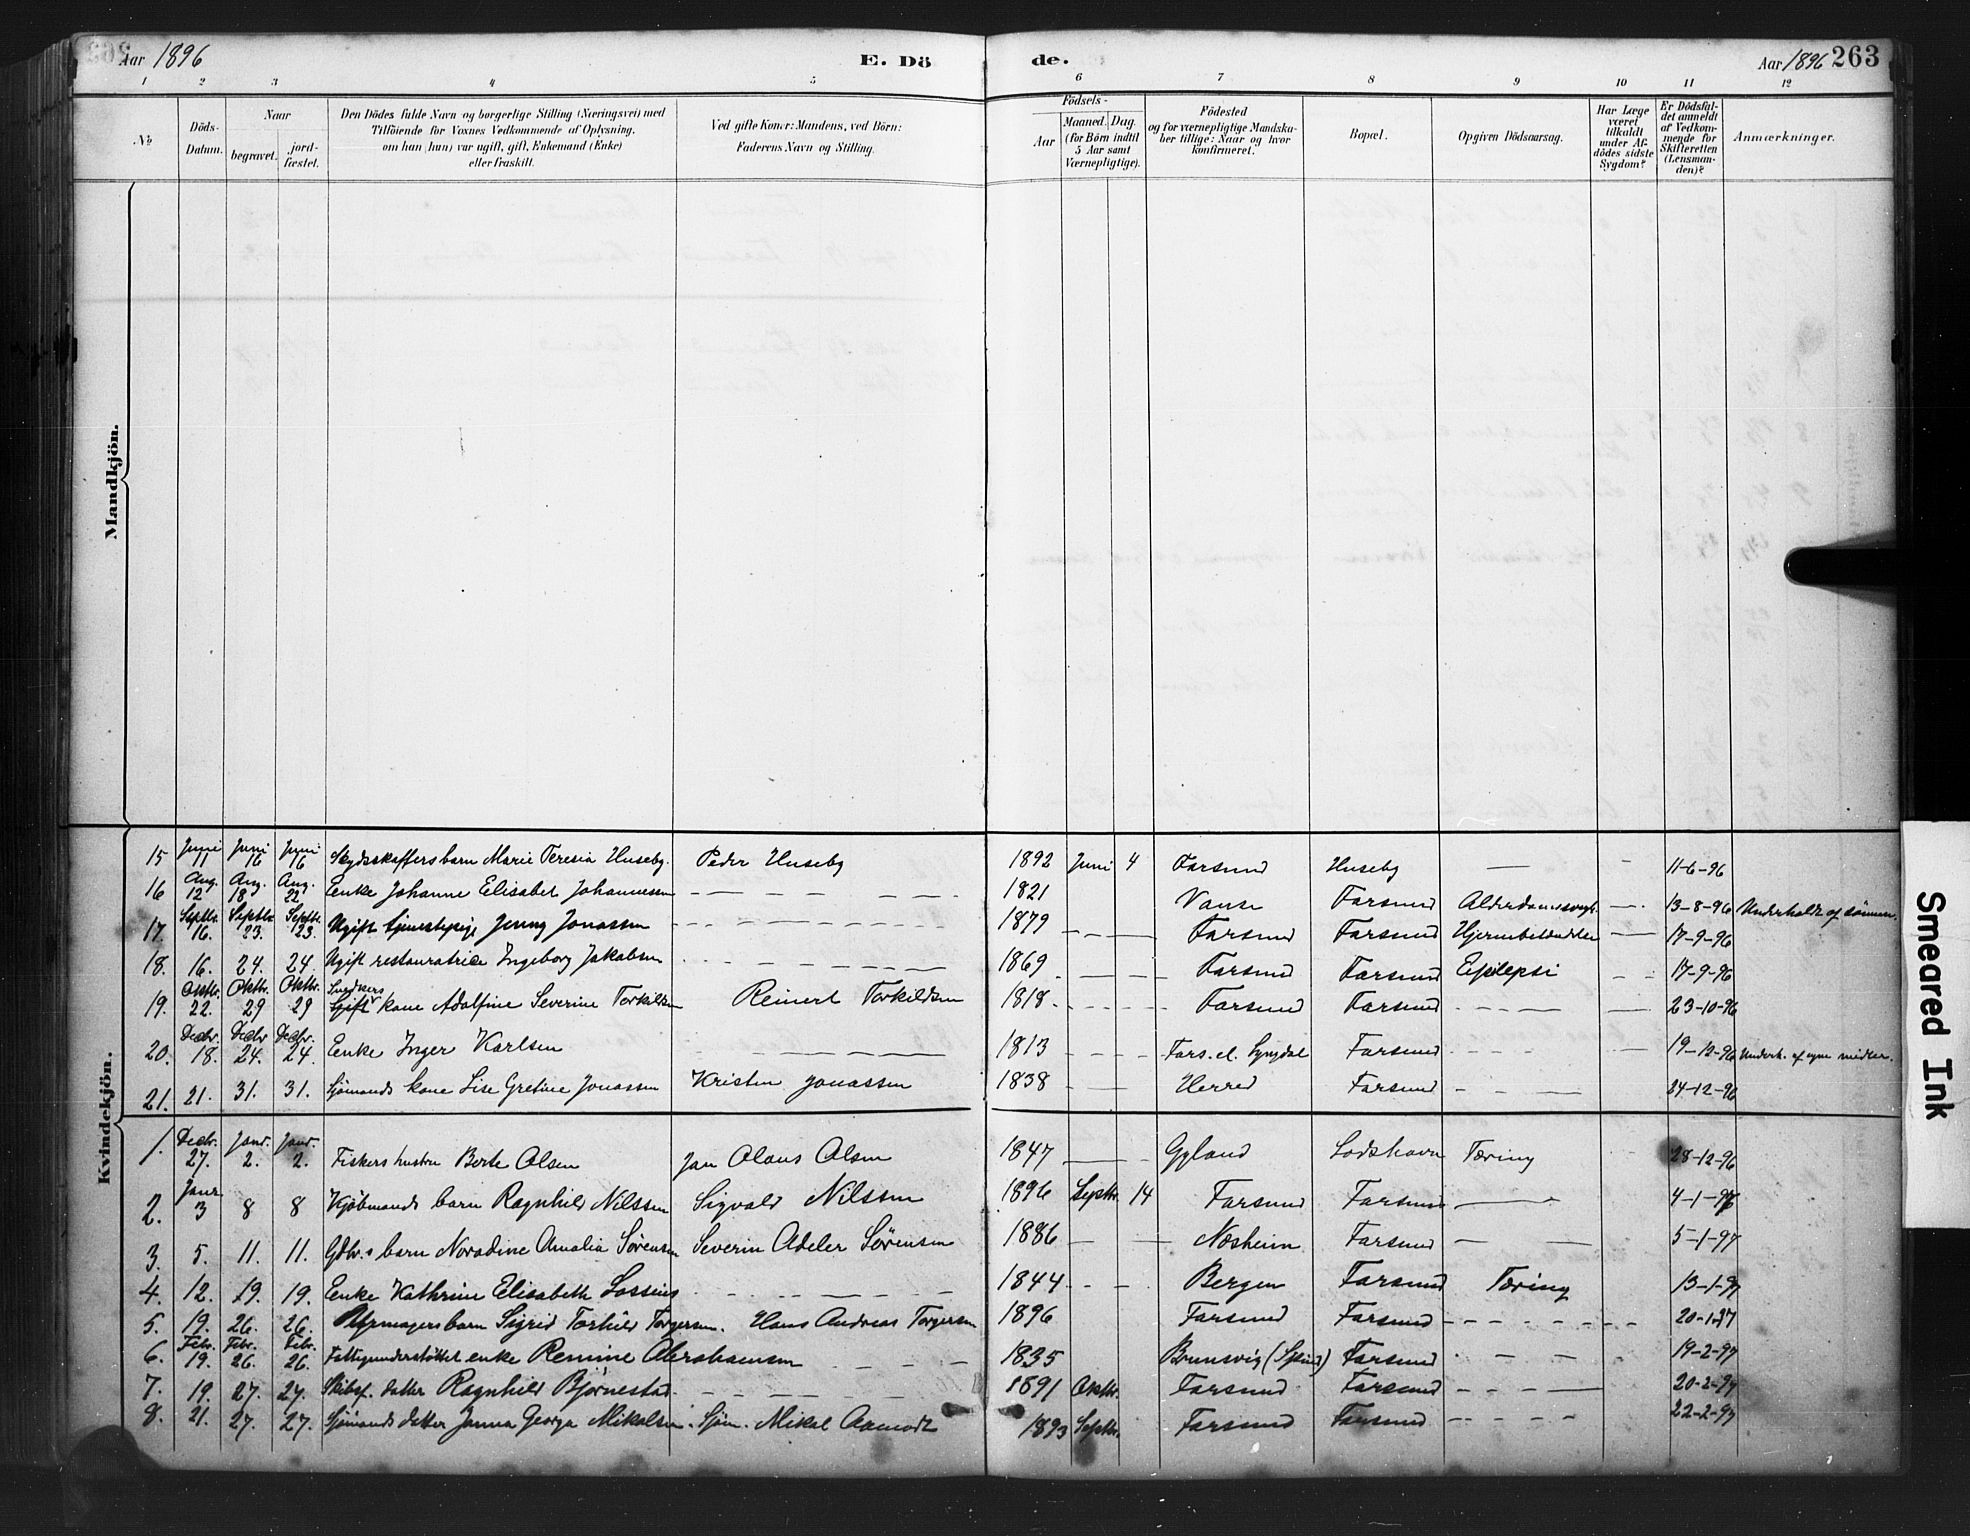 Aar 1896 E. Dö de. Aar 1896 263
1 2 3 4 5 6 7 8 9 10 11 12
No
Döds-Datum.
Naar
begravet.
jord-fæstet.
Den Dödes fulde Navn og borgerlige Stilling (Næringsvei) med
Tilföiende for Voxnes Vedkommende af Oplysning,
om han (hun) var ugift, gift, Enkemand (Enke)
eller fraskilt.
Ved gifte Koner: Mandens, ved Börn:
Faderens Navn og Stilling.
Födsels-
Aar
Maaned. Dag.
(for Börn indtil
5 Aar samt
Værnepligtige).
Födested
og for værnepligtige Mandska-
ber tillige: Naar og hvor
konfirmeret.
Bopæl.
Opgiven Dödsaarsag.
Har Læge
været
tilkaldt
under Af-
dödes sidste
Sygdom?
Er Dödsfal-
det anmeldt
af Vedkom-
mende for
Skifteretten
(Lensman-
den)?
Anmærkninger.
Mandkjön.
Kvindekjön.
15 Juni 11 Juni 16 Juni 16 Skydsskaffers barn Marie Teresia Huseby. Peder Huseby 1892 Juni 4 Farsund Huseby — - 11-6-96
16 Aug. 12 Aug. 18 Aug. 22 Enke Johanne Elisabet Johannessen 1821 Vanse Farsund 13-8-96 Underholdt af sönnen.
17. Septbr. 16. Septbr. 23. Septbr. 23. Ugift tjenestepige Jenny Jonassen 1879 Farsund Farsund 17-9-96
18. 16. 24. 24. Ugift restauratrice Ingeborg Jakobsen 1869 Farsund Farsund Epilepsi 17-9-96
19. Oktbr. 22. Oktbr. 29 Oktbr. 29 Snedkers kone Adolfine Severine Torkildsen Reinert Torkildsen 1818. Farsund Farsund 23-10-96
20. Decbr. 18. Decbr. 24. Decbr. 24. Enke Inger Karlsen 1813 Fars. el. Lyngdal Farsund 19-12-96 Underh. af egne midler.
21. 21. 31. 31. Sjömands kone Lise Gretine Jonassen Kristen Jonassen 1838 Herred Farsund 24-12-96
1. Decbr. 27. Janr. 2. Janr. 2. Fiskers hustru Berte Olsen Jan Olaus Olsen 1847 Gyland Lodshavn Tæring 28-12-96
2. Janr. 3 8 8 Kjöbmands barn Ragnhild Nilssen Sigvald Nilssen 1896 Septbr. 14 Farsund Farsund 4-1-97
3. 5. 11. 11. Gdbr.s barn Noradine Amalia Sörensen Severin Adeler Sörensen 1886 Næsheim Farsund 5-1-97
4. 12. 19. 19. Enke Kathrine Elisabeth Lossius 1844 Bergen Farsund Tæring 13-1-97
5. 19. 26. 26. Sigrid Torhild Torgersen. Hans Andreas Torgersen 1896 Farsund Farsund 20-1-97
6. Febr. 19. Febr. 26. Febr. 26. Fattigunderstöttet enke Remine Abrahamsen 1835 Brunsvig (Spind) Farsund 19-2-97
7. 19. 27. 27. Skibsf. datter Ragnhild Bjørnestad 1891 Oktbr. Farsund Farsund 20-2-97
8. 21. 27. 27. Sjömands datter Janna Georga Mikalsen. Sjöm. Mikal Aamodt 1893 Septbr. Farsund Farsund 22-2-97
Smeared Ink